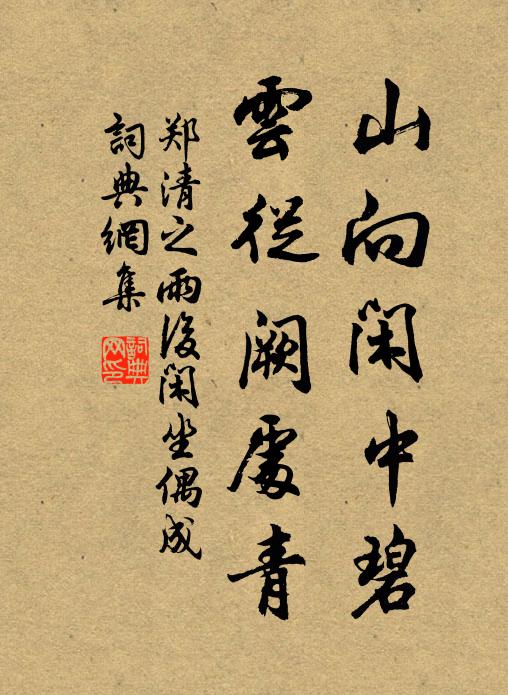 山向閑中碧
雲從闕處青
郑清之雨後閑坐偶成
詞典網集
詞典網印